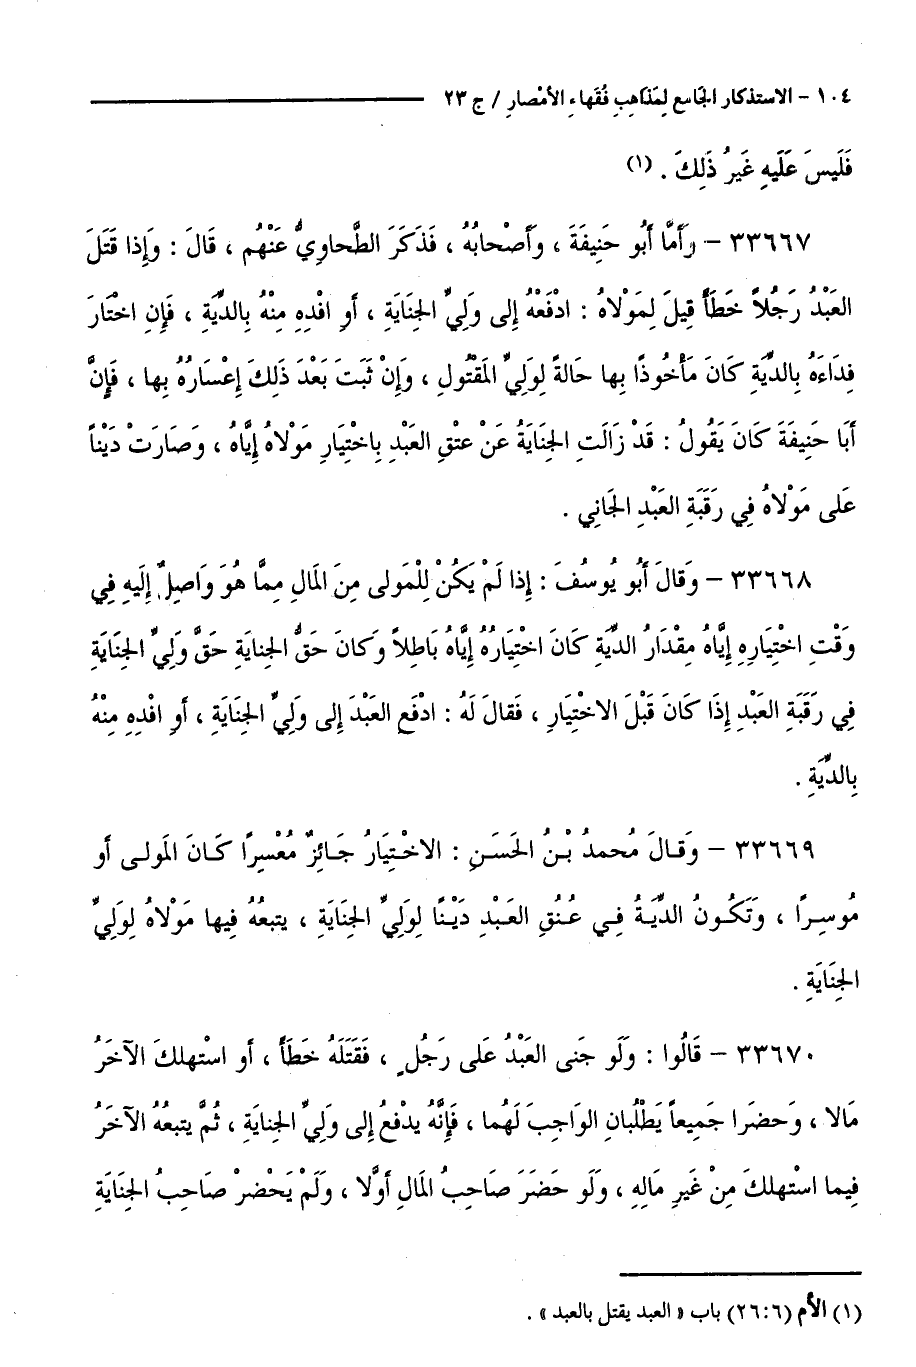 ١٠٤ - الاستذكار الجَامع لِمَذَاهِبِ فُقَهاءِ الأَمْصارِ / ج ٢٣
فَلَيسَ عَلَيهِ غَيرُ ذَلِكَ . (١)
٣٣٦٦٧ - وَأَمَّا أَبُو حَنِيفَةَ ، وَأَصْحابُهُ ، فَذَكَرَ الطَّحاوِيُّ عَنْهُم ، قَالَ : وَإِذا قَتَلَ
العَبْدُ رَجُلاً خَطَأً قِيلَ لِمَوْلاهُ : ادْفَعْهُ إِلى وَلِيِّ الجِنَايَةِ ، أَوِ افْدِهِ مِنْهُ بِالدِّيَةِ ، فَإِنِ اخْتَارَ
فِدَاءَهُ بِالدِّيَةِ كَانَ مَأْخُوذًا بِها حَالةً لِوَلِيِّ المَقْتُولِ ، وَإِنْ ثَبَتَ بَعْدَ ذَلِكَ إِعْسَارُهُ بِها ، فَإِنَّ
أَبَا حَنِيفَةَ كَانَ يَقُولُ : قَدْ زَالَتِ الجِنَايَةُ عَنْ عتْقِ العَبْدِ بِاخْتِيَارِ مَوْلاهُ إِيَّاهُ ، وَصَارَتْ دَيْناً
عَلى مَوْلاهُ فِي رَقَبَةِ العَبْدِ الجَانِي .
٣٣٦٦٨ - وَقالَ أَبُو يُوسُفَ : إِذا لَمْ يَكُنْ لِلْمَولى مِنَ المَالِ مِمَّا هُوَ وَاصِلٌ إِلَيهِ فِي
وَقْتِ اخْتِيَارِهِ إِيَّاه مِقْدَارُ الدِّيَةِ كَانَ اخْتِيَارُهُ إِيَّاهُ بَاطِلاً وَكَانَ حَقُّ الجِنايَةِ حَقَّ وَلِيِّ الجِنَايَةِ
فِي رَقَبَةِ العَبْدِ إِذَا كَانَ قَبْلَ الاخْتِيَارِ ، فَقالَ لَهُ : ادْفَعِ العَبْدَ إِلى وَلِيِّ الجِنَايَةِ ، أَوِ افْدِهِ مِنْهُ
بِالدِّيَةِ .
٣٣٦٦٩ - وَقَالَ مُحمدُ بْنُ الحَسَنِ : الاخْتِيَارُ جَائِزٌ مُعْسِرًا كَانَ المَولى أَو
مُوسِرًا ، وَتَكُونُ الدِّيَةُ فِي عُنُقِ العَبْدِ دَيْنًا لِوَلِيِّ الجِنَايَةِ ، يتبعُهُ فِيها مَوْلاهُ لِوَلِيِّ
الجِنَايَةِ .
٣٣٦٧٠ - قَالُوا : وَلَو جَنى العَبْدُ عَلى رَجُلٍ ، فَقَتَلَهُ خَطَأً ، أَو اسْتهلكَ الآخَرُ
مَالا ، وَحضَرا جَميعاً يَطْلُبانِ الوَاجِبَ لَهُما ، فَإِنَّهُ يدْفعُ إِلى وَلِيِّ الجِنايَةِ ، ثُمَّ يتبعُهُ الآخَرُ
فِيما اسْتهلكَ مِنْ غَيرِ مَالِهِ ، وَلَو حَضَرَ صَاحِبُ المَالِ أَوَّلا ، وَلَمْ يَحْضر صَاحِبُ الجِنَايَةِ
(١) الأم (٦ : ٢٦) باب « العبد يقتل بالعبد » .